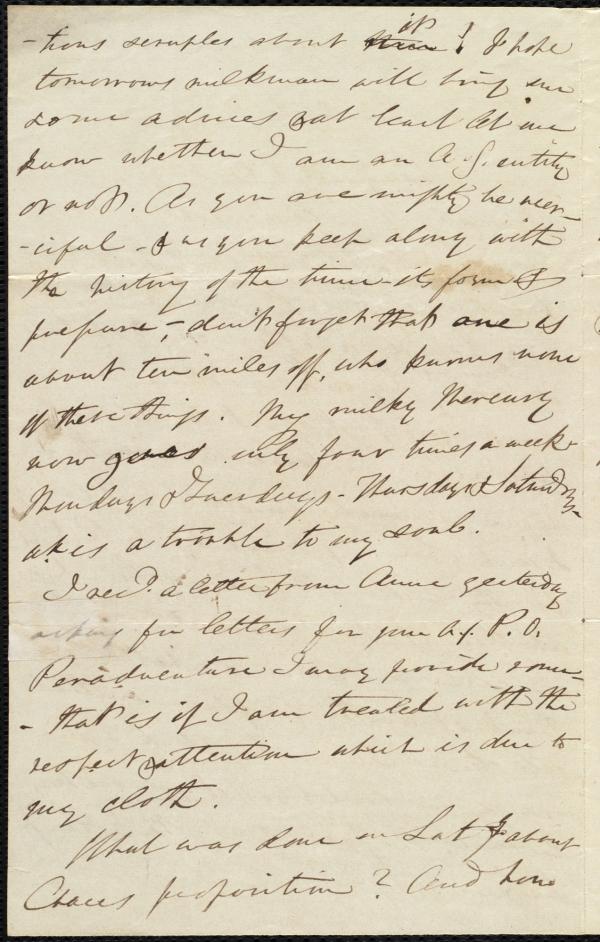 -tious scruples about ~~them~~ it! I hope
tomorrows milkman will bring me
some advices & at least let me
know whether I am an A. S. entity
or not. As you are mighty be mer-
-ciful - & as you keep along with
the history of the time - its form &
pressure, - don't forget that one is
about ten miles off, who knows none
of these things. My milky Mercury
now goes only four times a week -
Mondays & Tuesdays - Thursdays & Saturdays -
It is a trouble to my soul.
I recd. a letter from Anne yesterday
asking for letters for your A. S. P. O.
Peradventure I may provide some -
- that is if I am treated with the
respect & attention which is due to
my cloth.
What was done on Sat y about
Chaces proposition? And how